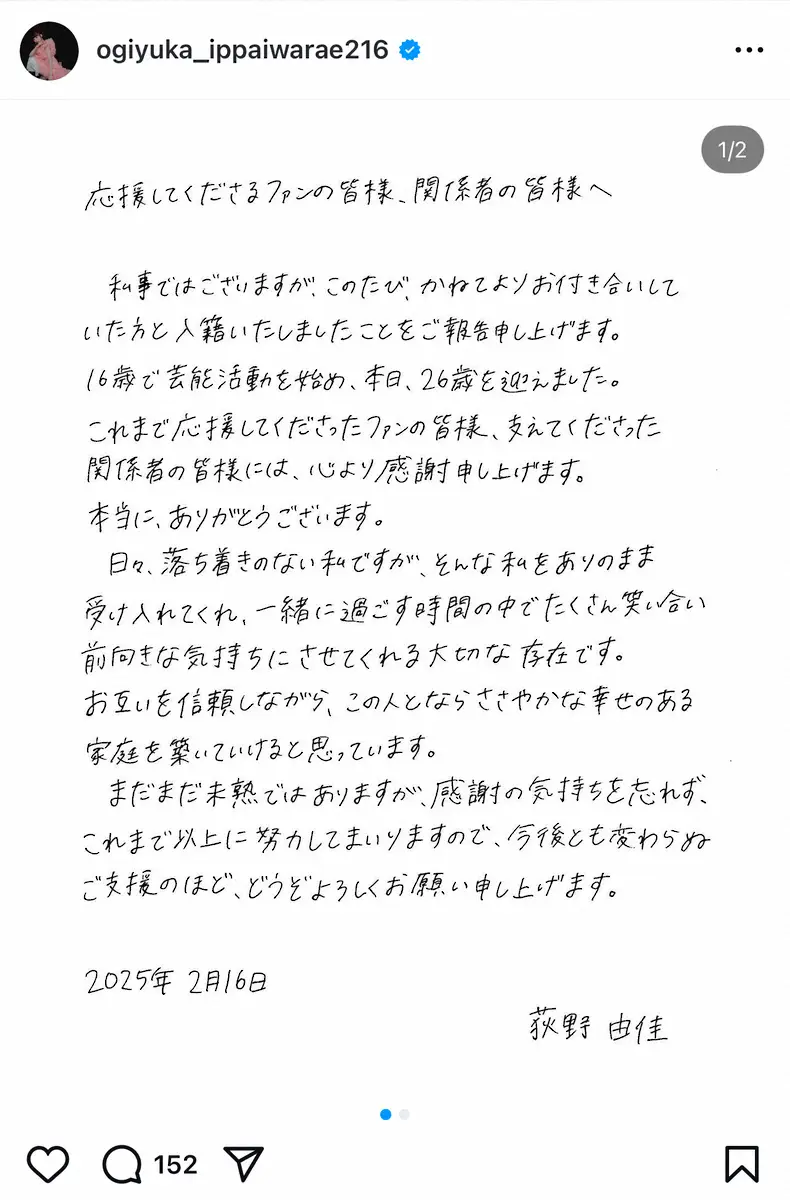 ogiyuka_ippaiwarae216
1/2
応援してくださるファンの皆様、関係者の皆様へ
私事ではございますが、このたび、かねてよりお付き合いして
いた方と入籍いたしましたことをご報告申し上げます。
16歳で芸能活動を始め、本日、26歳を迎えました。
これまで応援してくださったファンの皆様、支えてくださった
関係者の皆様には、心より感謝申し上げます。
本当に、ありがとうございます。
日々、落ち着きのない私ですが、そんな私をありのまま
受け入れてくれ、一緒に過ごす時間の中でたくさん笑い合い
前向きな気持ちにさせてくれる大切な存在です。
お互いを信頼しながら、この人とならささやかな幸せのある
家庭を築いていけると思っています。
まだまだ未熟ではありますが、感謝の気持ちを忘れず、
これまで以上に努力してまいりますので、今後とも変わらぬ
ご支援のほど、どうぞよろしくお願い申し上げます。
2025年 2月16日
荻野 由佳
152